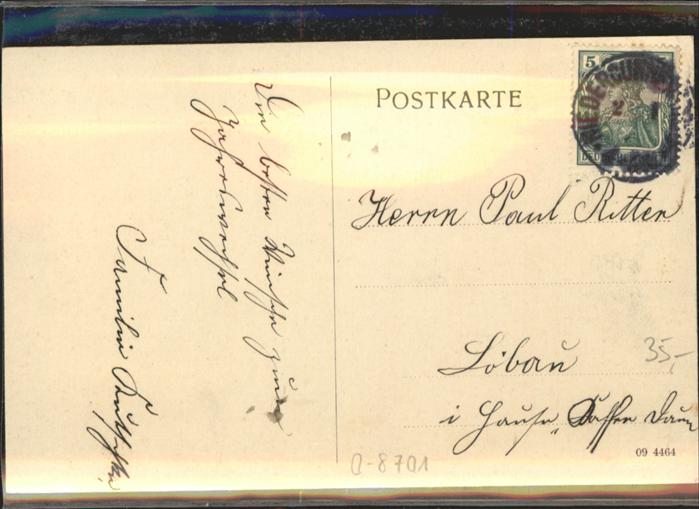 POSTKARTE
5
NIEDERCUN
DEUTSCHES REICH
Die besten Wünsche zum
Jahreswechsel
Familie
Herrn Paul Ritter
Löbau
i
35,-
09 4464
D-8701